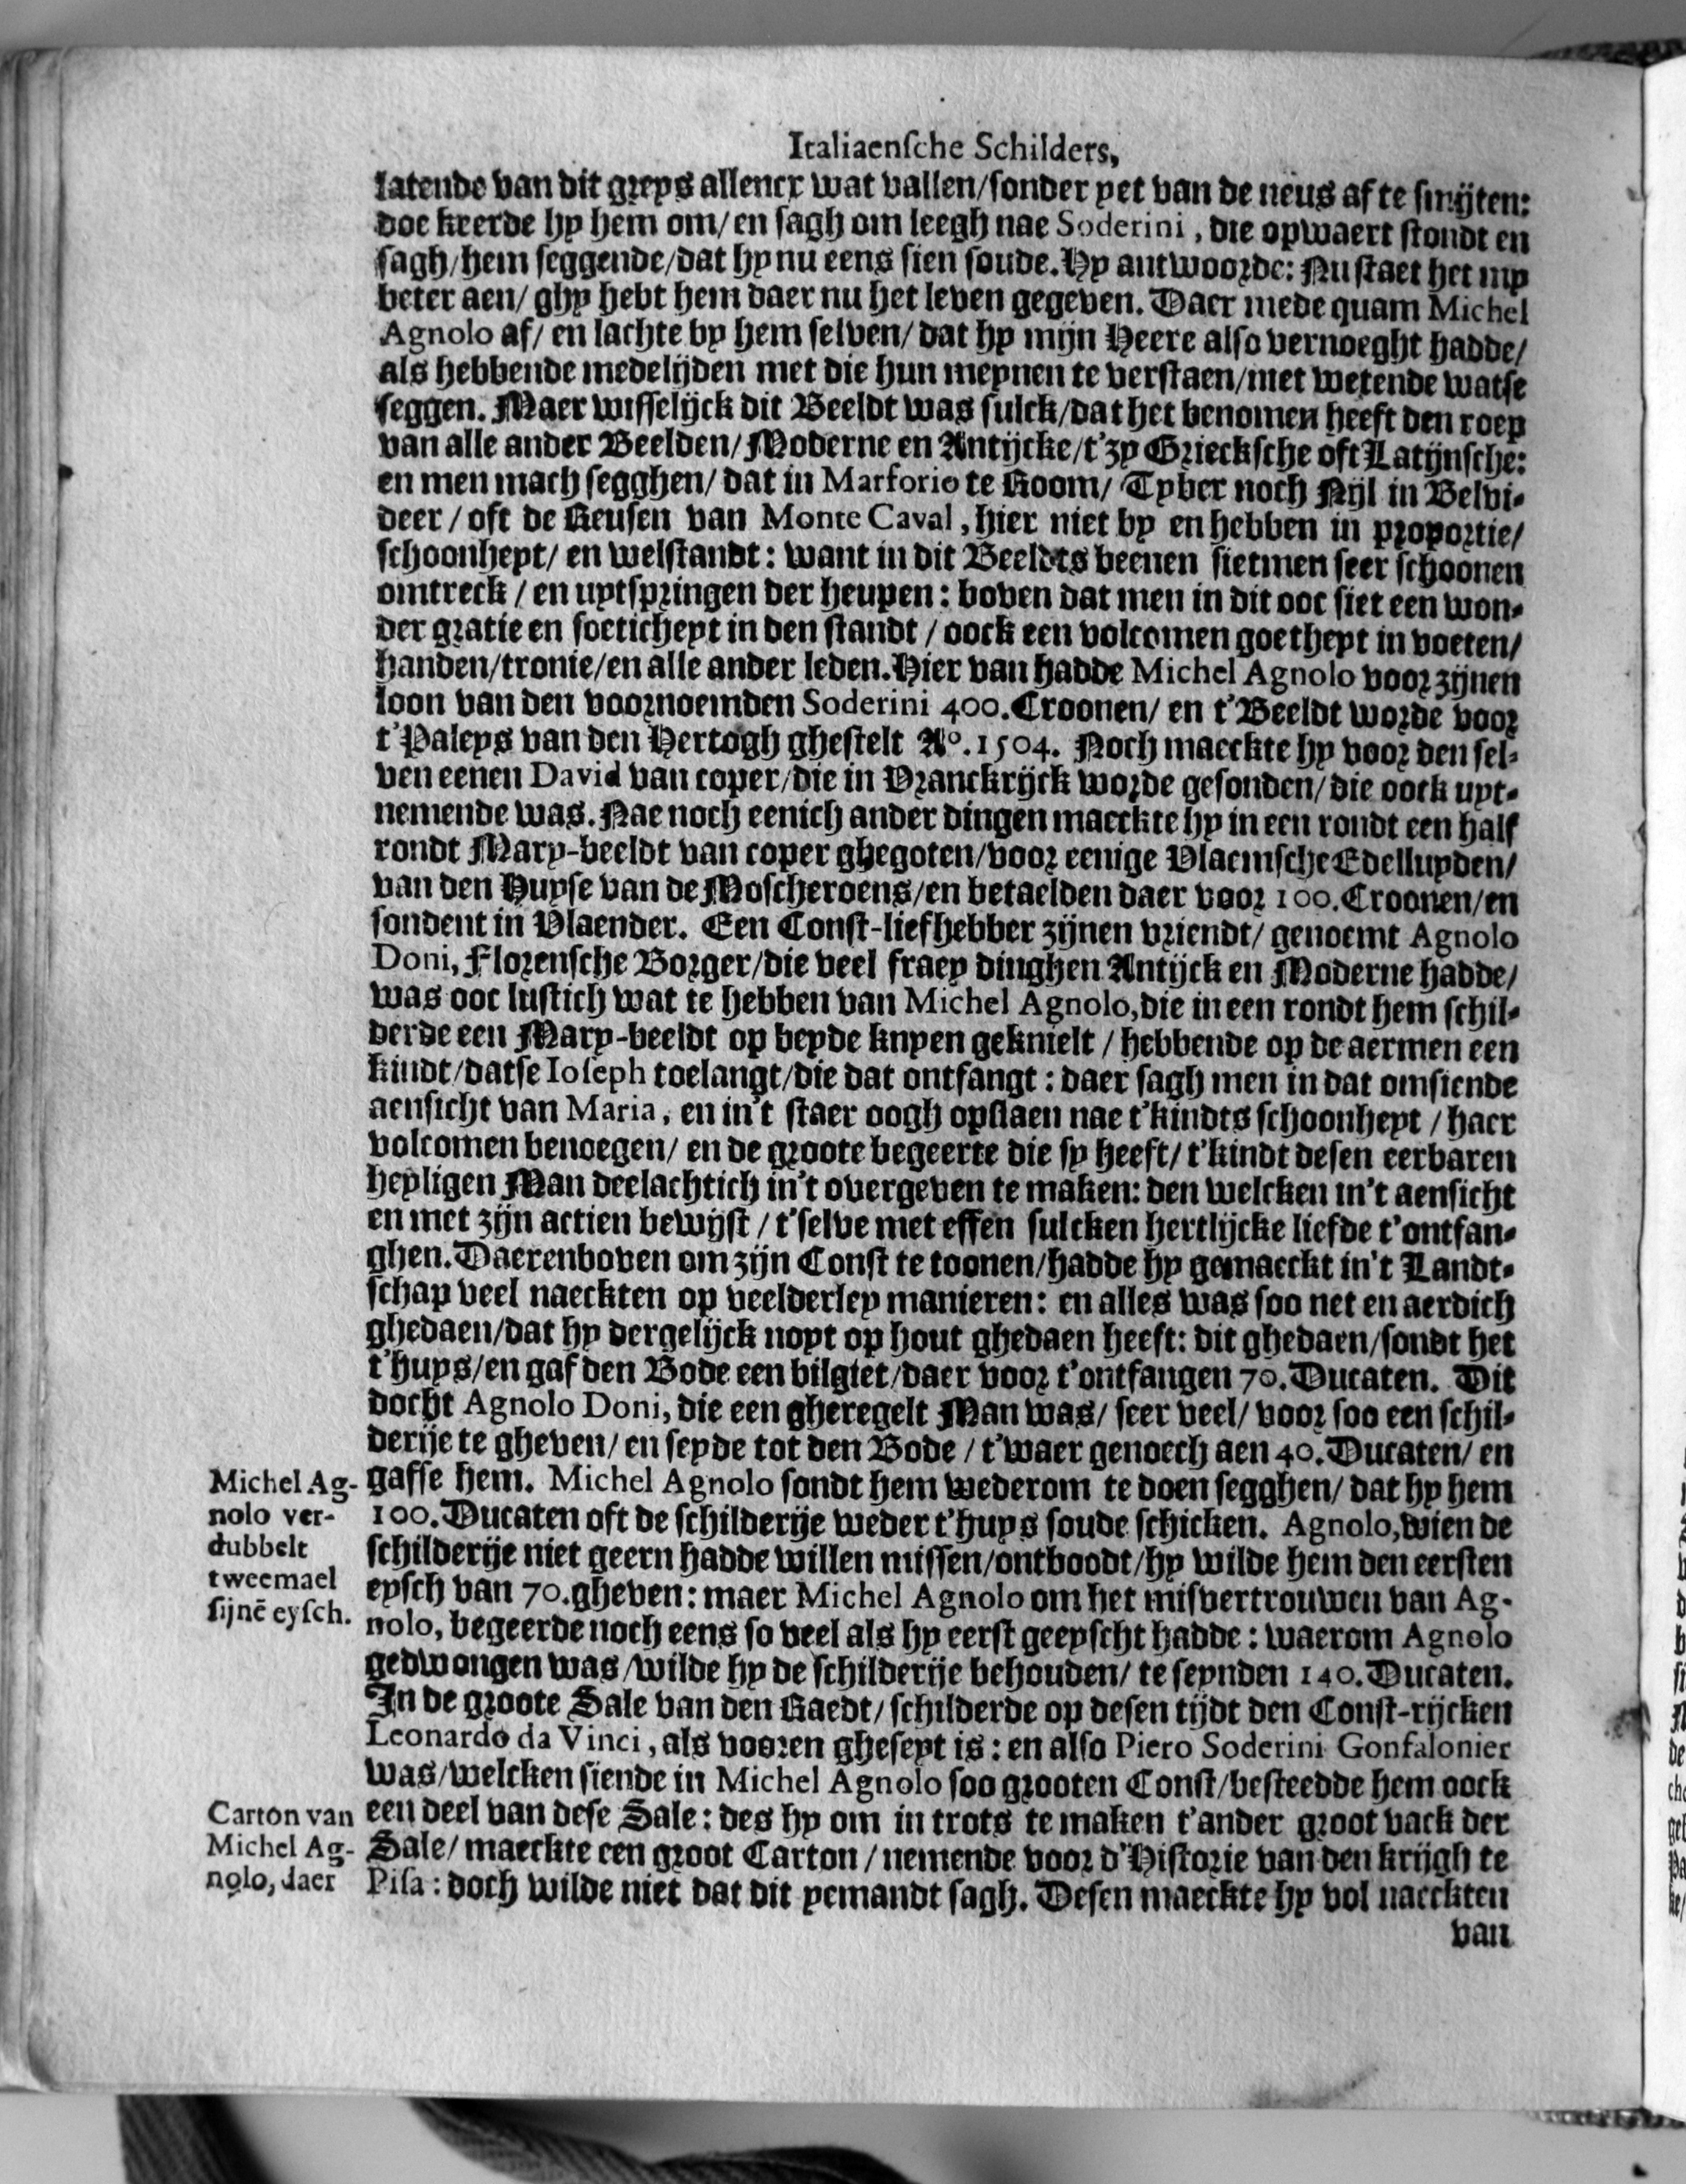 Italiaensche Schilders,
latende van dit greys allencx wat vallen/sonder yet van de neus af te smijten:
doe keerde hy hem om/ en sagh om leegh nae Soderini, die opwaert stondt en
sagh/hem seggende/dat hy nu eens sien soude. Hy antwoorde: Nu staet het my
beter aen/ ghy hebt hem daer nu het leven gegeven. Daer mede quam Michel
Agnolo af/ en lachte by hem selven/ dat hy mijn Heere also vernoeght hadde/
als hebbende medelijden met die hun meynen te verstaen/niet wetende watse
seggen. Maer wisselijck dit Beeldt was sulck/dat het benomen heeft den roep
van alle ander Beelden/ Moderne en Antijcke/t'zy Griecksche oft Latijnsche:
en men mach segghen/ dat in Marforio te Room/ Tyber noch Nijl in Belvi-
deer / oft de Reusen van Monte Caval, hier niet by en hebben in proportie/
schoonheyt/ en welstandt: want in dit Beeldts beenen sietmen seer schoonen
omtreck / en uytspringen der heupen: boven dat men in dit ooc siet een won-
der gratie en soeticheyt in den standt / oock een volcomen goetheyt in voeten/
handen/tronie/en alle ander leden. Hier van hadde Michel Agnolo voor zijnen
loon van den voornoemden Soderini 400. Croonen/ en t'Beeldt worde voor
t'Paleys van den Hertogh ghestelt Aº. 1504. Noch maeckte hy voor den sel-
ven eenen David van coper/die in Vranckrijck worde gesonden/ die oock uyt-
nemende was. Nae noch eenich ander dingen maeckte hy in een rondt een half
rondt Mary-beeldt van coper ghegoten/voor eenige Vlaemsche Edelluyden/
van den Huyse van de Moscheroens/en betaelden daer voor 100. Croonen/en
sondent in Vlaender. Een Const-liefhebber zijnen vriendt/ genoemt Agnolo
Doni, Florensche Borger/die veel fraey dinghen Antijck en Moderne hadde/
was ooc lustich wat te hebben van Michel Agnolo, die in een rondt hem schil-
derde een Mary-beeldt op beyde knyen geknielt / hebbende op de aermen een
kindt/datse Ioseph toelangt/die dat ontfangt: daer sagh men in dat omsiende
aensicht van Maria, en in't staer oogh opslaen nae t'kindts schoonheyt / haer
volcomen benoegen/ en de groote begeerte die sy heeft/ t'kindt desen eerbaren
heyligen Man deelachtich in't overgeven te maken: den welcken in't aensicht
en met zijn actien bewijst / t'selve met effen sulcken hertlijcke liefde t'ontfan-
ghen. Daerenboven om zijn Const te toonen/hadde hy gemaeckt in't Landt-
schap veel naeckten op veelderley manieren: en alles was soo net en aerdich
ghedaen/dat hy dergelijck noyt op hout ghedaen heeft: dit ghedaen/sondt het
t'huys/en gaf den Bode een bilgiet/daer voor t'ontfangen 70. Ducaten. Dit
docht Agnolo Doni, die een gheregelt Man was/ seer veel/ voor soo een schil-
derije te gheven/ en seyde tot den Bode / t'waer genoech aen 40. Ducaten/ en
gaffe hem. Michel Agnolo sondt hem wederom te doen segghen/ dat hy hem
100. Ducaten oft de schilderije weder t'huys soude schicken. Agnolo, wien de
schilderije niet geern hadde willen missen/ontboodt/hy wilde hem den eersten
eysch van 70. gheven: maer Michel Agnolo om het misvertrouwen van Ag-
nolo, begeerde noch eens so veel als hy eerst geeyscht hadde: waerom Agnolo
gedwongen was/wilde hy de schilderije behouden/ te seynden 140. Ducaten.
In de groote Sale van den Raedt/ schilderde op desen tijdt den Const-rijcken
Leonardo da Vinci, als vooren gheseyt is: en also Piero Soderini Gonfalonier
was/welcken siende in Michel Agnolo soo grooten Const/besteedde hem oock
een deel van dese Sale: des hy om in trots te maken t'ander groot vack der
Sale/ maeckte een groot Carton / nemende voor d'Historie van den krijgh te
Pisa: doch wilde niet dat dit yemandt sagh. Desen maeckte hy vol naeckten
van
Michel Ag-
nolo ver-
dubbelt
tweemael
sijnē eysch.
Carton van
Michel Ag-
nolo, daer